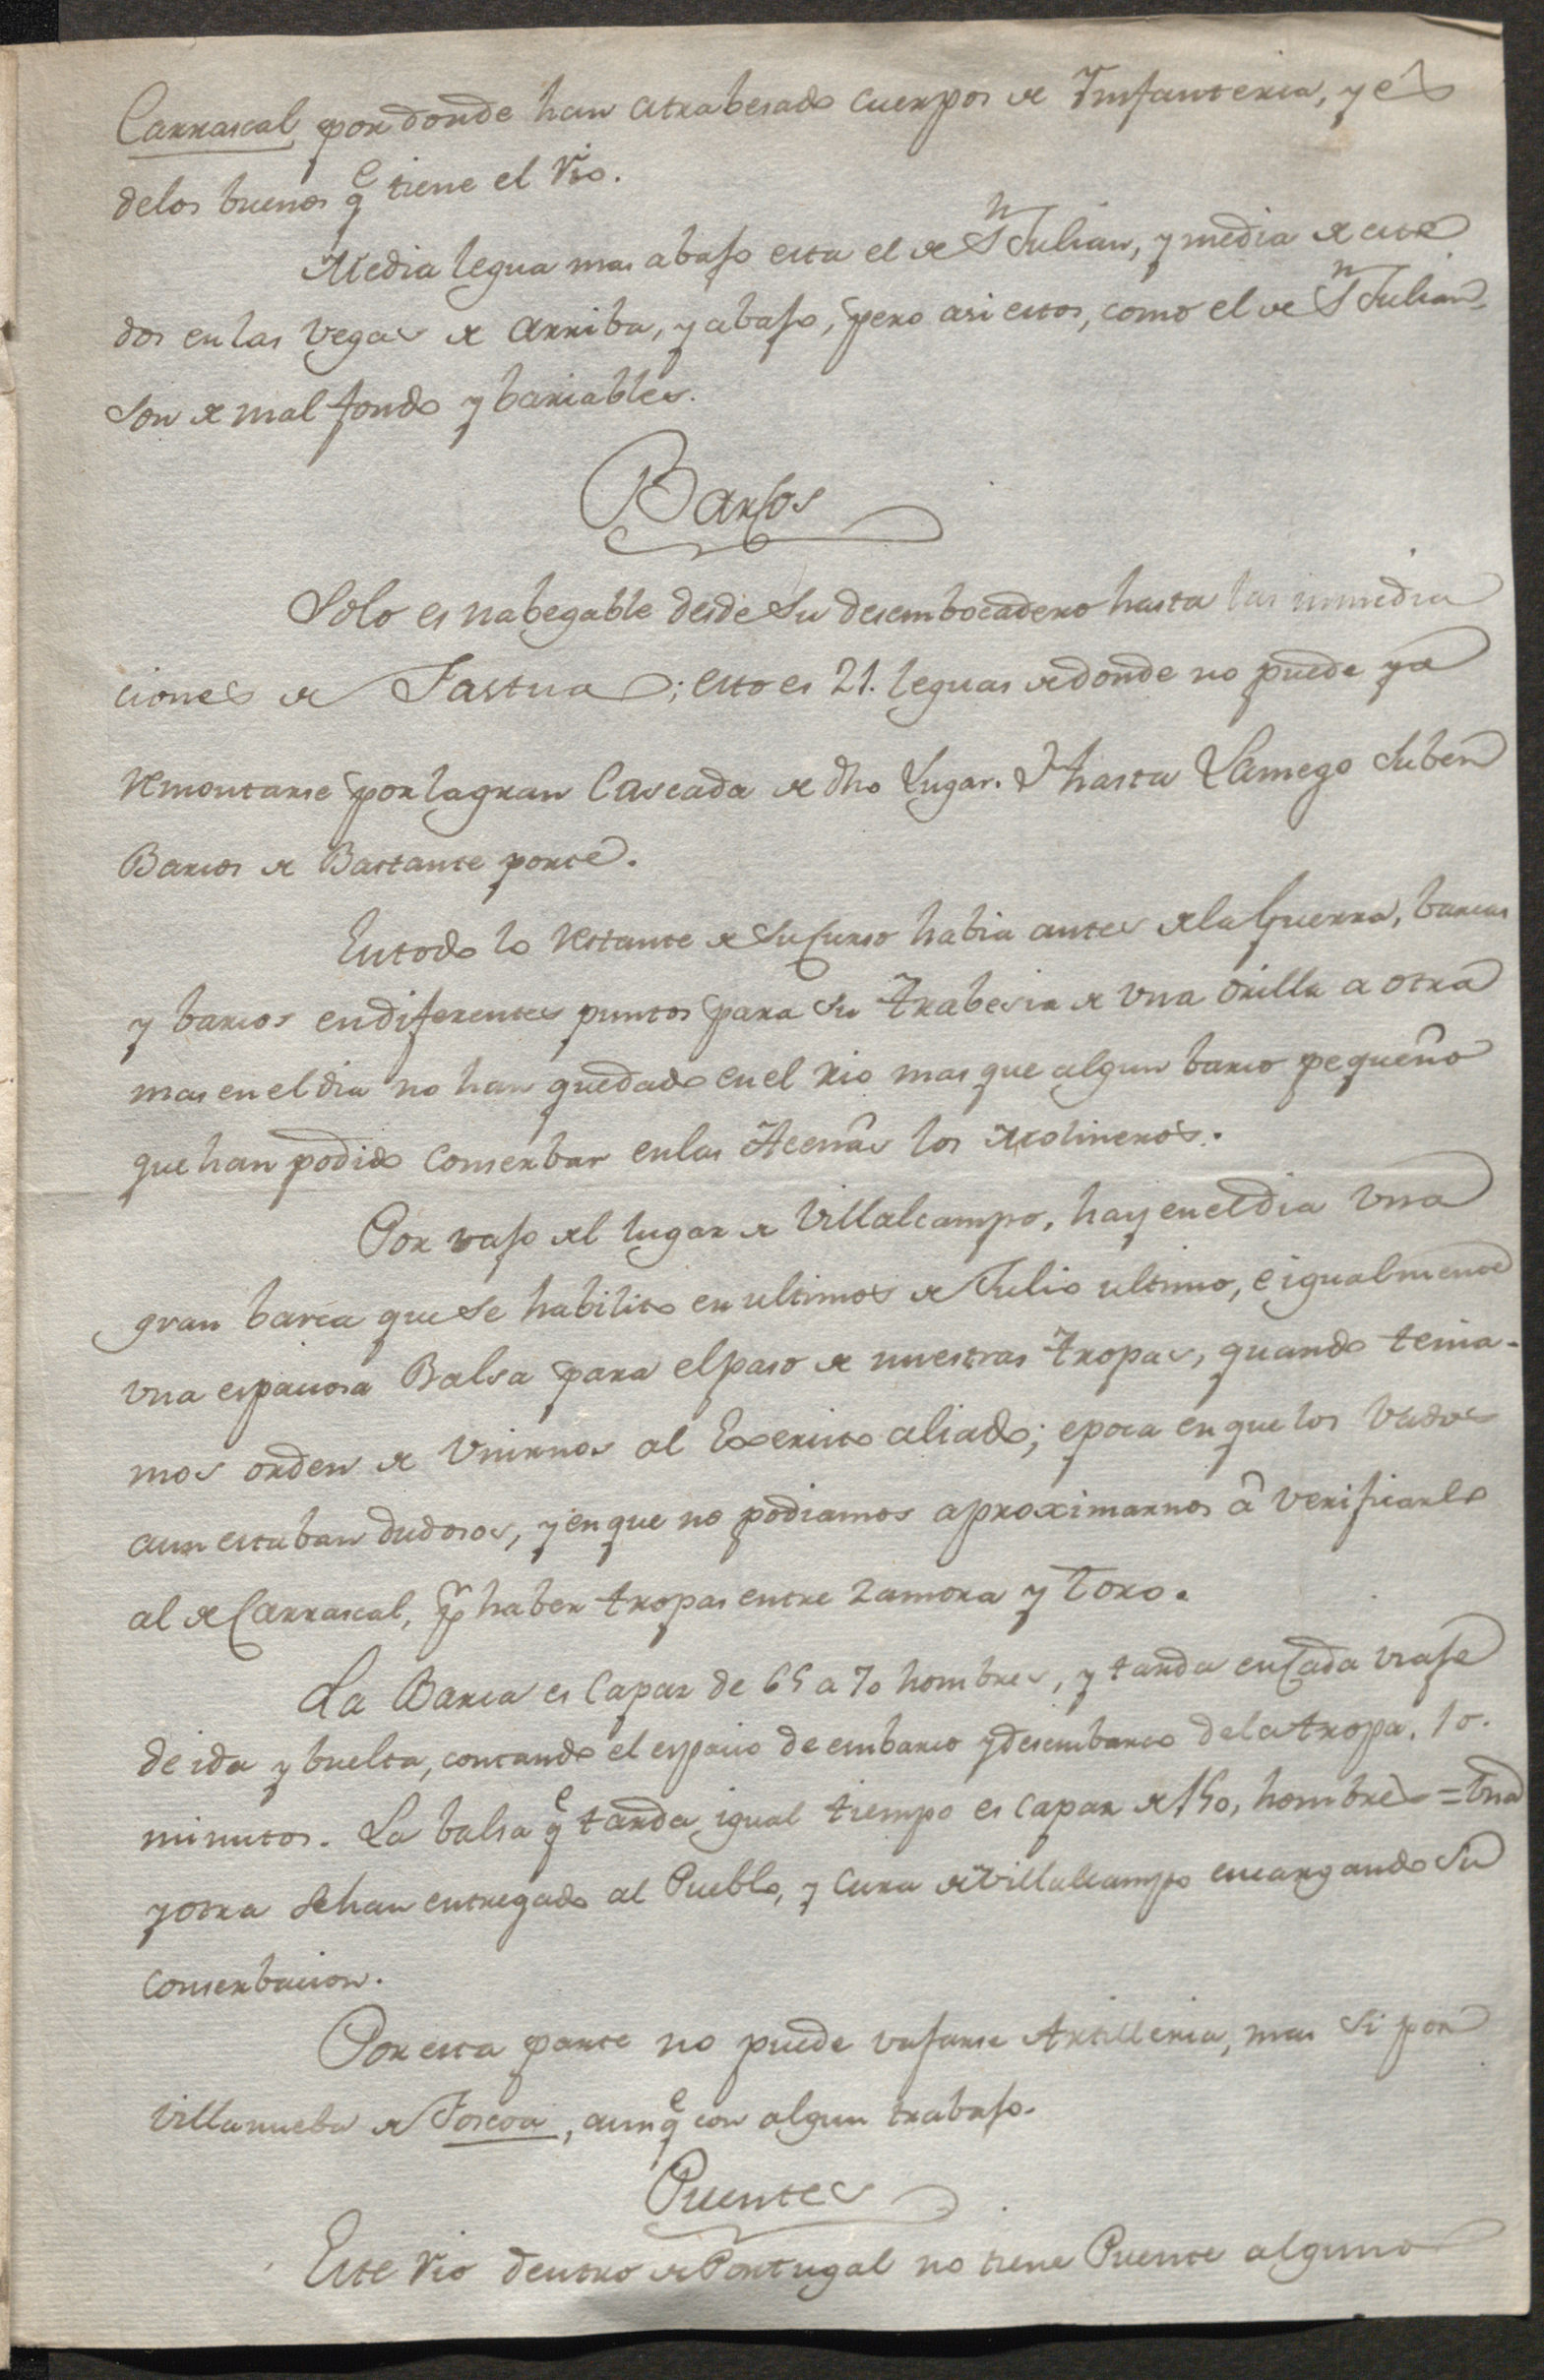 Carrascal por donde han atrabesado cuerpos de Ynfanteria, y es
delos buenos q.e tiene el Rio.
Media legua mas abajo esta el de S.n Julian, y media de este
dos en las vegas de arriba, y abajo, pero asi estos, como el de S.n Julian,
son de mal fondo y bariables.
Barcos
Solo es nabegable desde su desembocadero hasta las inmedia
ciones de Fastua; esto es 21. leguas de donde no puede ya
remontarse por la gran Cascada de dho Lugar. Y hasta Lamego suben
Barcos de Bastante porte.
En todo lo restante de su Curso habia antes dela Guerra, barcas
y barcos en diferentes puntos para su trabesia de una orilla a otra
mas en el dia no han quedado en el rio mas que algun barco pequeño
que han podido conserbar en las Aceñas los Molineros.
Por vajo del lugar de Villalcampo, hay en el dia una
gran barca que se habilito en ultimos de Julio ultimo, e igualmente
una espaciosa Balsa para el paso de nuestras tropas, quando tenia-
mos orden de Unirnos al Exercito aliado; epoca en que los vados
aun estaban dudosos, y en que no podiamos aproximarnos â verificarlo
al de Carrascal, p.r haber tropas entre Zamora y Toro.
La Barca es Capaz de 65 a 70 hombres, y tarda en Cada viaje
de ida y buelta, contando el espacio de embarco y desembarco dela tropa. 10.
minutos. La balsa q.e tarda igual tiempo es capaz de 150, hombres = Una
y otra se han entregado al Pueblo, y Cura de Villalcampo encargando su
conserbacion.
Por esta parte no puede vajarse Artilleria, mas si por
Villanueba de Foscoa, aunq.e con algun trabajo.
Puentes
Este Rio dentro de Portugal no tiene Puente alguno